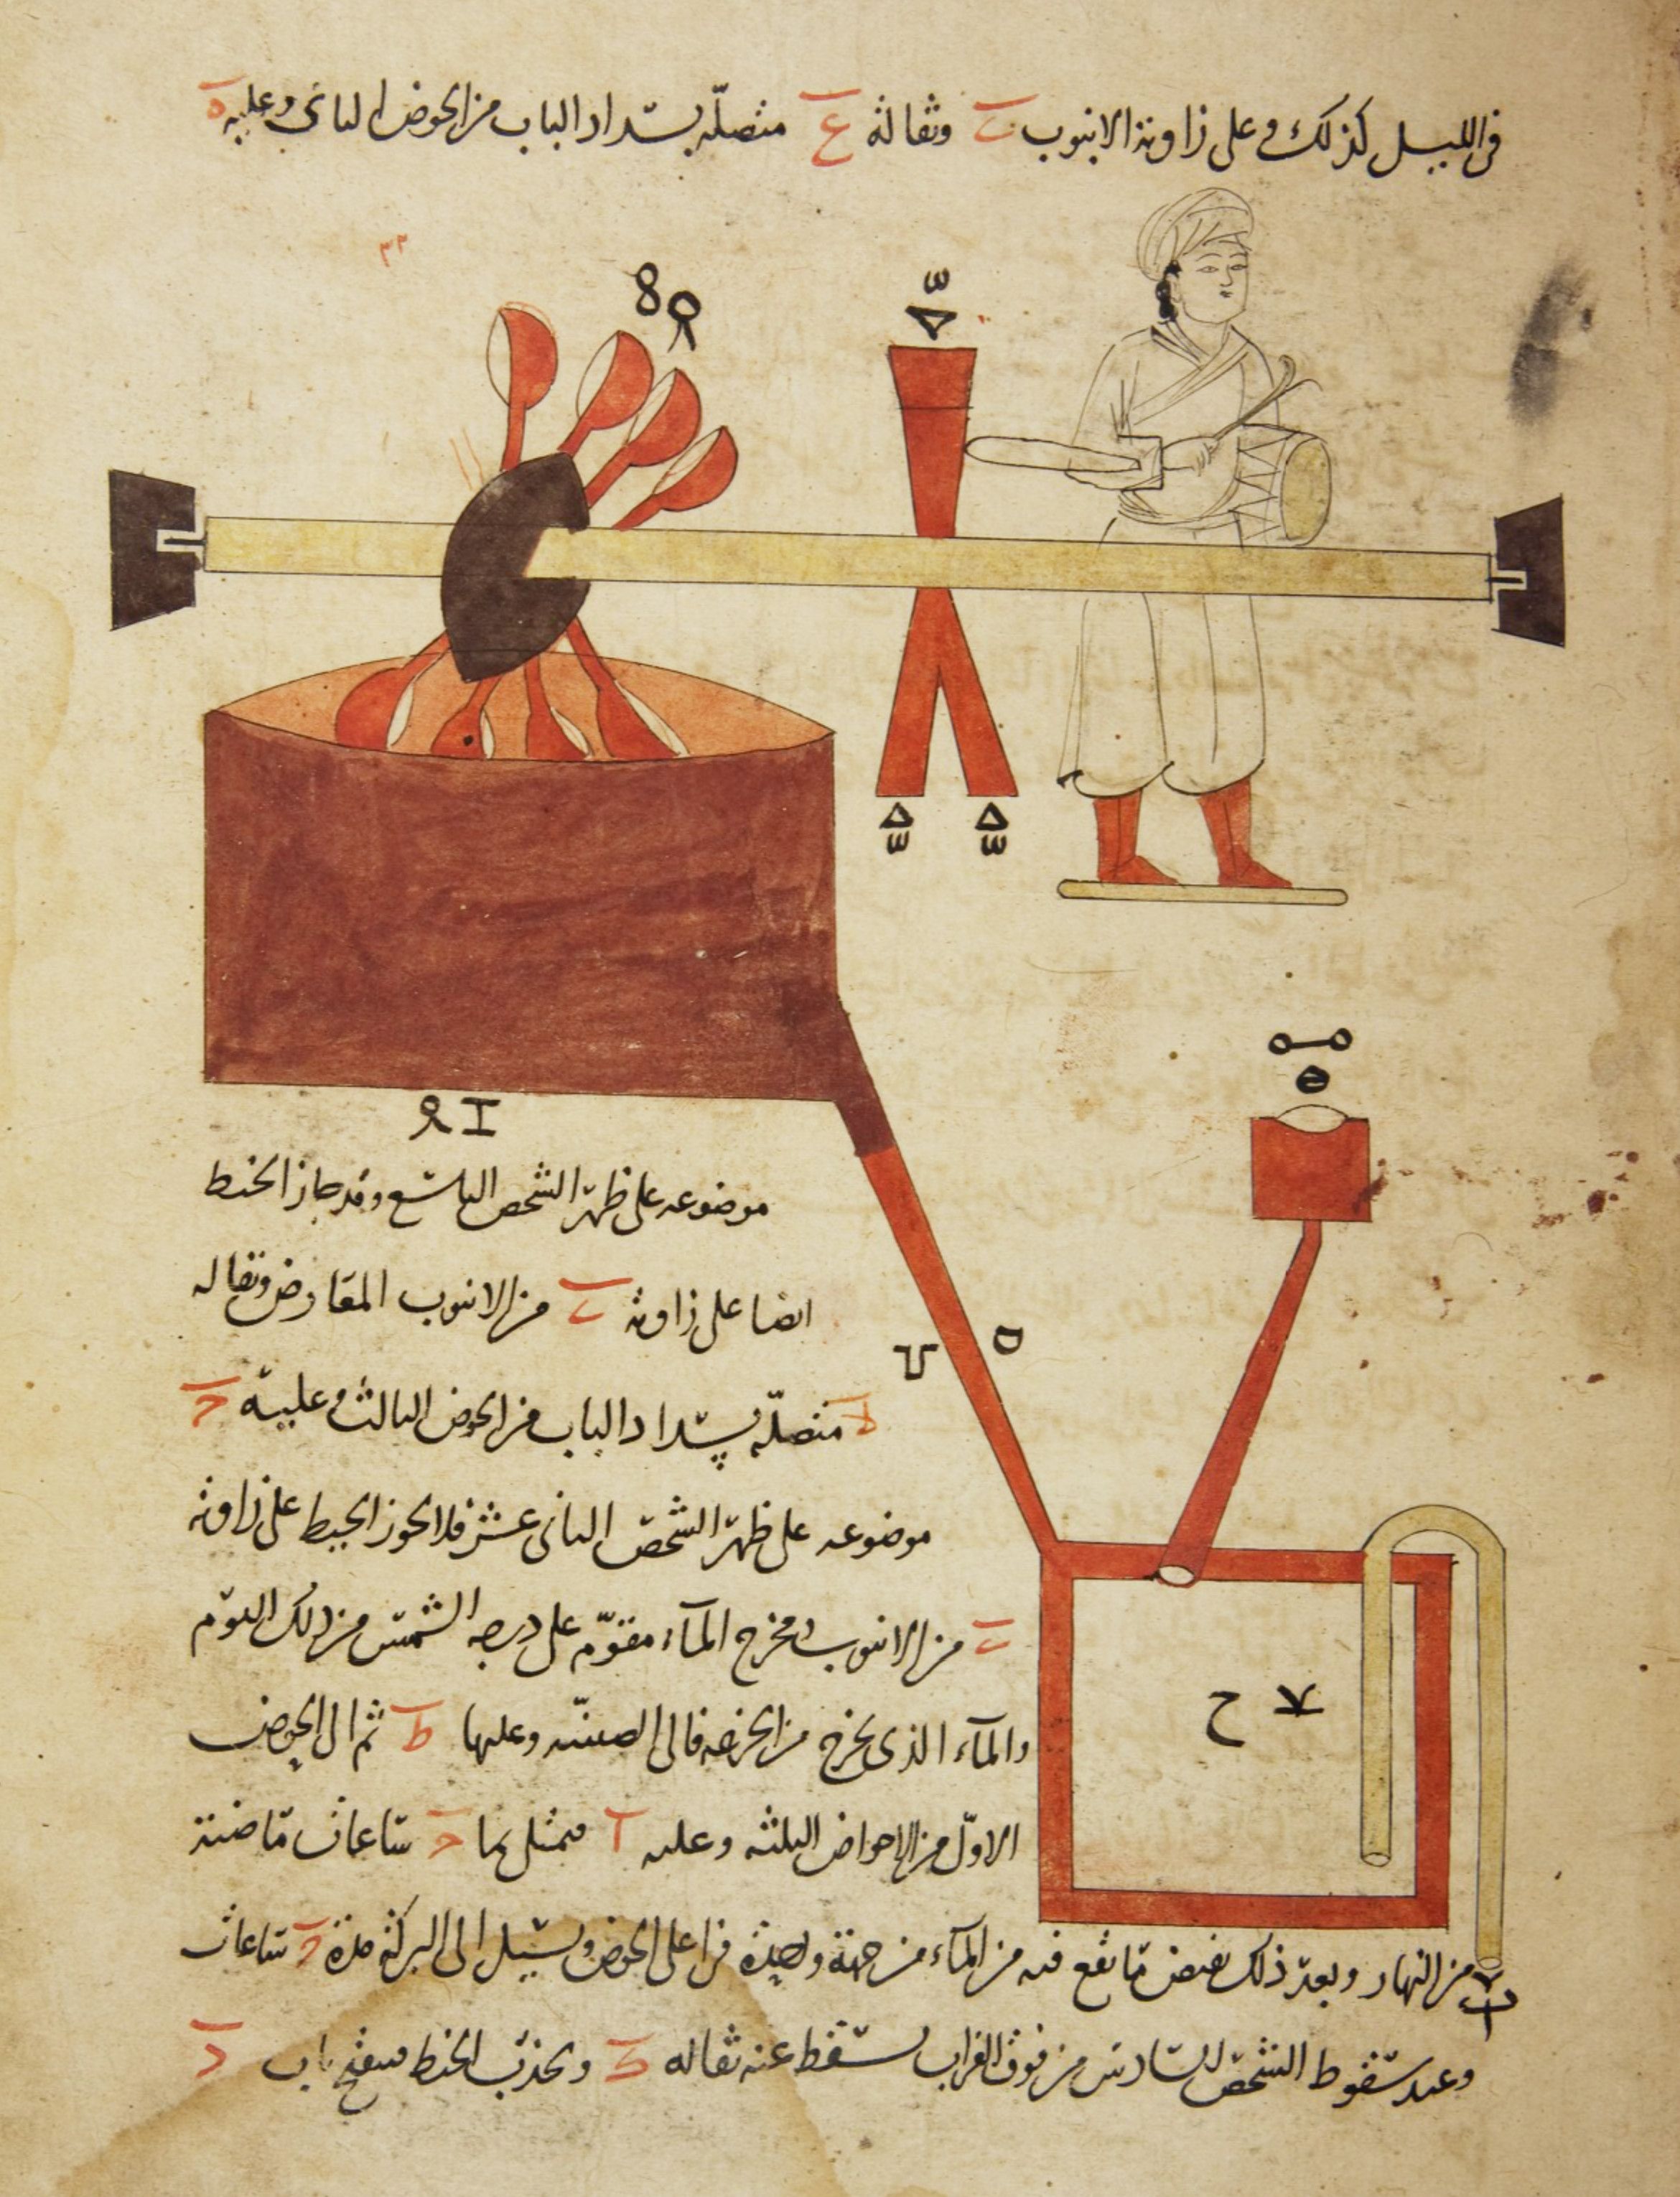 في الليل كذلك وعلى زاوية الانبوب ٮ وثقالة ع متصلة بسداد الباب من الحوض الثاني وعليه ه
٣٢
موضوعه على ظهر الشخص التاسع وقد جاز الخيط
ايضا على زاوية ٮ من الانبوب المعارض وثقاله
متصلة بسداد الباب من الحوض الثالث وعليه
موضوعه على ظهر الشخص الثاني عشر فلا يجوز الخيط على زاوية
ٮ من الانبوب ومخرج المآء مقوّم على درجه الشمس من ذلك اليوم
والمآء الذي يخرج من الجزعه فالى الصينيه وعليها ط ثم الى الحوض
الاوّل من الاحواض الثلثه وعليه ا فيمتلى بما و ساعات ماضية
من النهار وبعد ذلك يفيض ما يقع فيه من المآء من جهة واحدة من اعلى الحوض ويسيل الى البركة مدة و ساعات
وعند سقوط الشخص السادس من فوق الغراب يسقط عنه ثقاله ك ويجذب الخيط فيفتح باب د